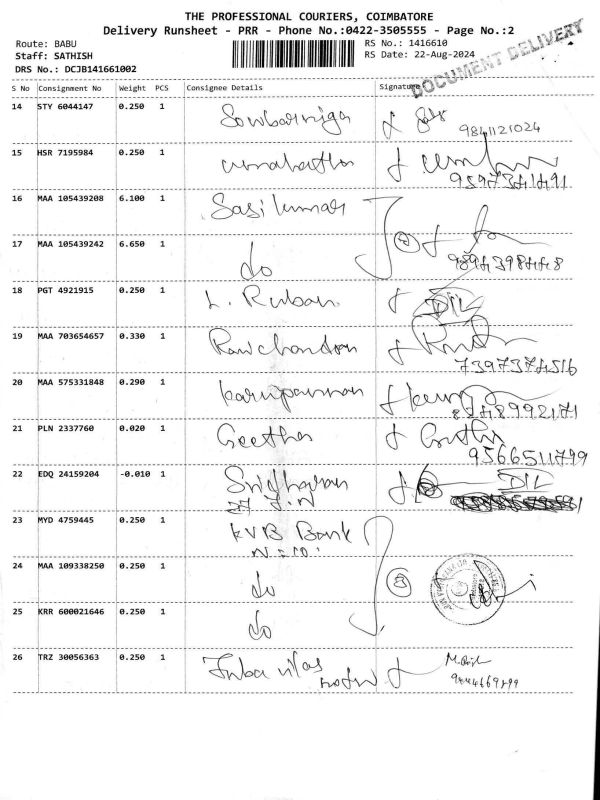 THE PROFESSIONAL COURIERS, COIMBATORE
Delivery Runsheet - PRR - Phone No.:0422-3505555 - Page No.:2
Route: BABU
Staff: SATHISH
DRS No.: DCJB141661002
RS No.: 1416610
RS Date: 22-Aug-2024
DOCUMENT DELIVERY
S No Consignment No Weight PCS Consignee Details Signature
14 STY 6044147 0.250 1 Sowbarniga
9841121024
15 HSR 7195984 0.250 1
16 MAA 105439208 6.100 1 Sasikumar
17 MAA 105439242 6.650 1 do
18 PGT 4921915 0.250 1 L. Ruban
19 MAA 703654657 0.330 1 Ravichandran
7397374516
20 MAA 575331848 0.290 1
8248992171
21 PLN 2337760 0.020 1 Geetha
9566511799
22 EDQ 24159204 -0.010 1 Sridharan
23 MYD 4759445 0.250 1 KVB Bank
24 MAA 109338250 0.250 1 do
25 KRR 600021646 0.250 1 do
26 TRZ 30056363 0.250 1